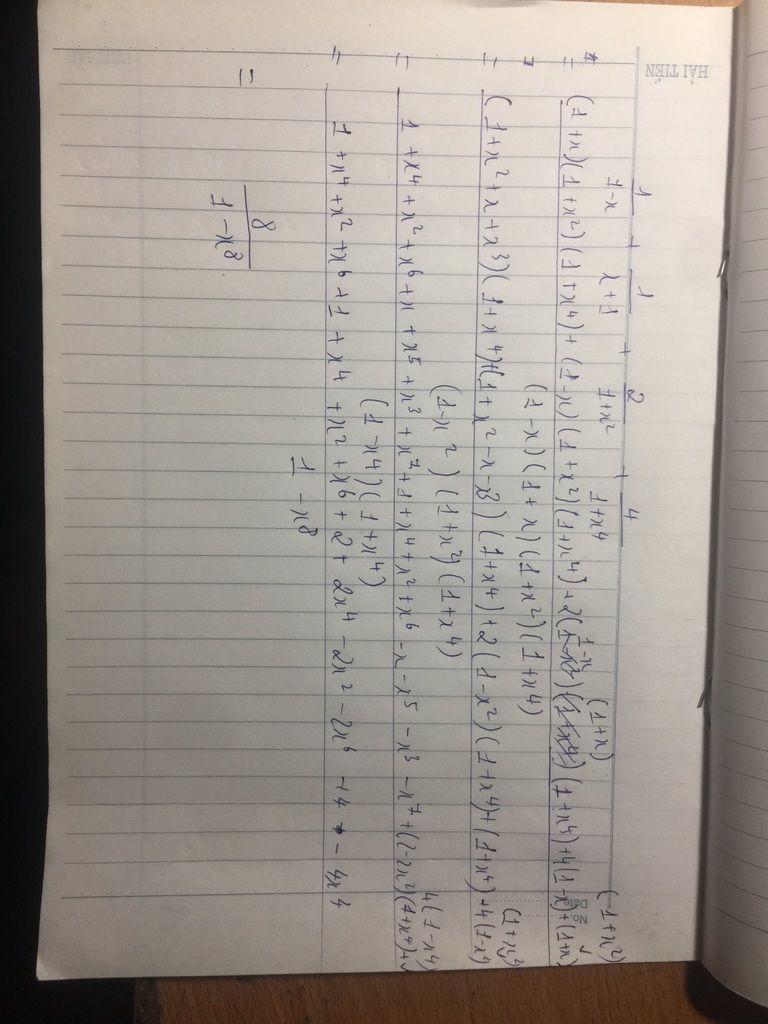 HẢI TIẾN
No.
Date
1/(1-x) + 1/(x+1) + 2/(1+x²) + 4/(1+x⁴)
= (1+x)(1+x²)(1+x⁴) + (1-x)(1+x²)(1+x⁴) + 2(1-x)(1+x)(1+x⁴) + 4(1-x)+(1+x)(1+x²)
(1-x)(1+x)(1+x²)(1+x⁴)
= (1+x²+x+x³)(1+x⁴)+(1+x²-x-x³)(1+x⁴)+2(1-x²)(1+x⁴)+(1+x⁴)+4(1-x²)(1+x²)
(1-x²)(1+x²)(1+x⁴)
= 1+x⁴+x²+x⁶+x+x⁵+x³+x⁷+1+x⁴+x²+x⁶-x-x⁵-x³-x⁷+(2-2x²)(1+x⁴)+4(1-x⁴)
(1-x⁴)(1+x⁴)
= 1+x⁴+x²+x⁶+1+x⁴+x²+x⁶+2+2x⁴-2x²-2x⁶+4-4x⁴
1-x⁸
= 8/(1-x⁸)